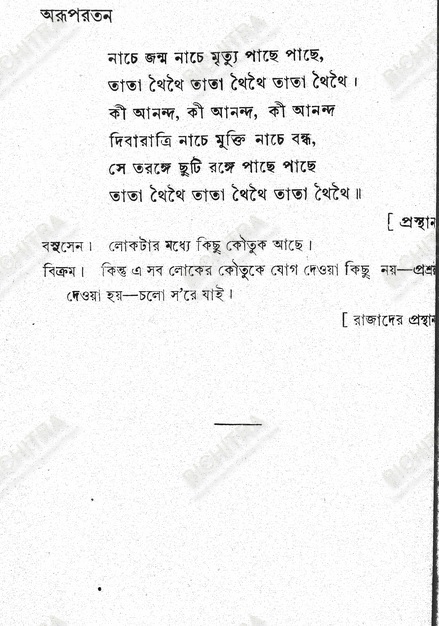 অরূপরতন
নাচে জন্ম নাচে মৃত্যু পাছে পাছে,
তাতা থৈথৈ তাতা থৈথৈ তাতা থৈথৈ।
কী আনন্দ, কী আনন্দ, কী আনন্দ
দিবারাত্রি নাচে মুক্তি নাচে বন্ধ,
সে তরঙ্গে ছুটি রঙ্গে পাছে পাছে
তাতা থৈথৈ তাতা থৈথৈ তাতা থৈথৈ॥
[ প্রস্থান
বসুসেন। লোকটার মধ্যে কিছু কৌতুক আছে।
বিক্রম। কিন্তু এ সব লোকের কৌতুকে যোগ দেওয়া কিছু নয়—প্রশ্রয়
দেওয়া হয়—চলো স'রে যাই।
[ রাজাদের প্রস্থান
BICHITRA